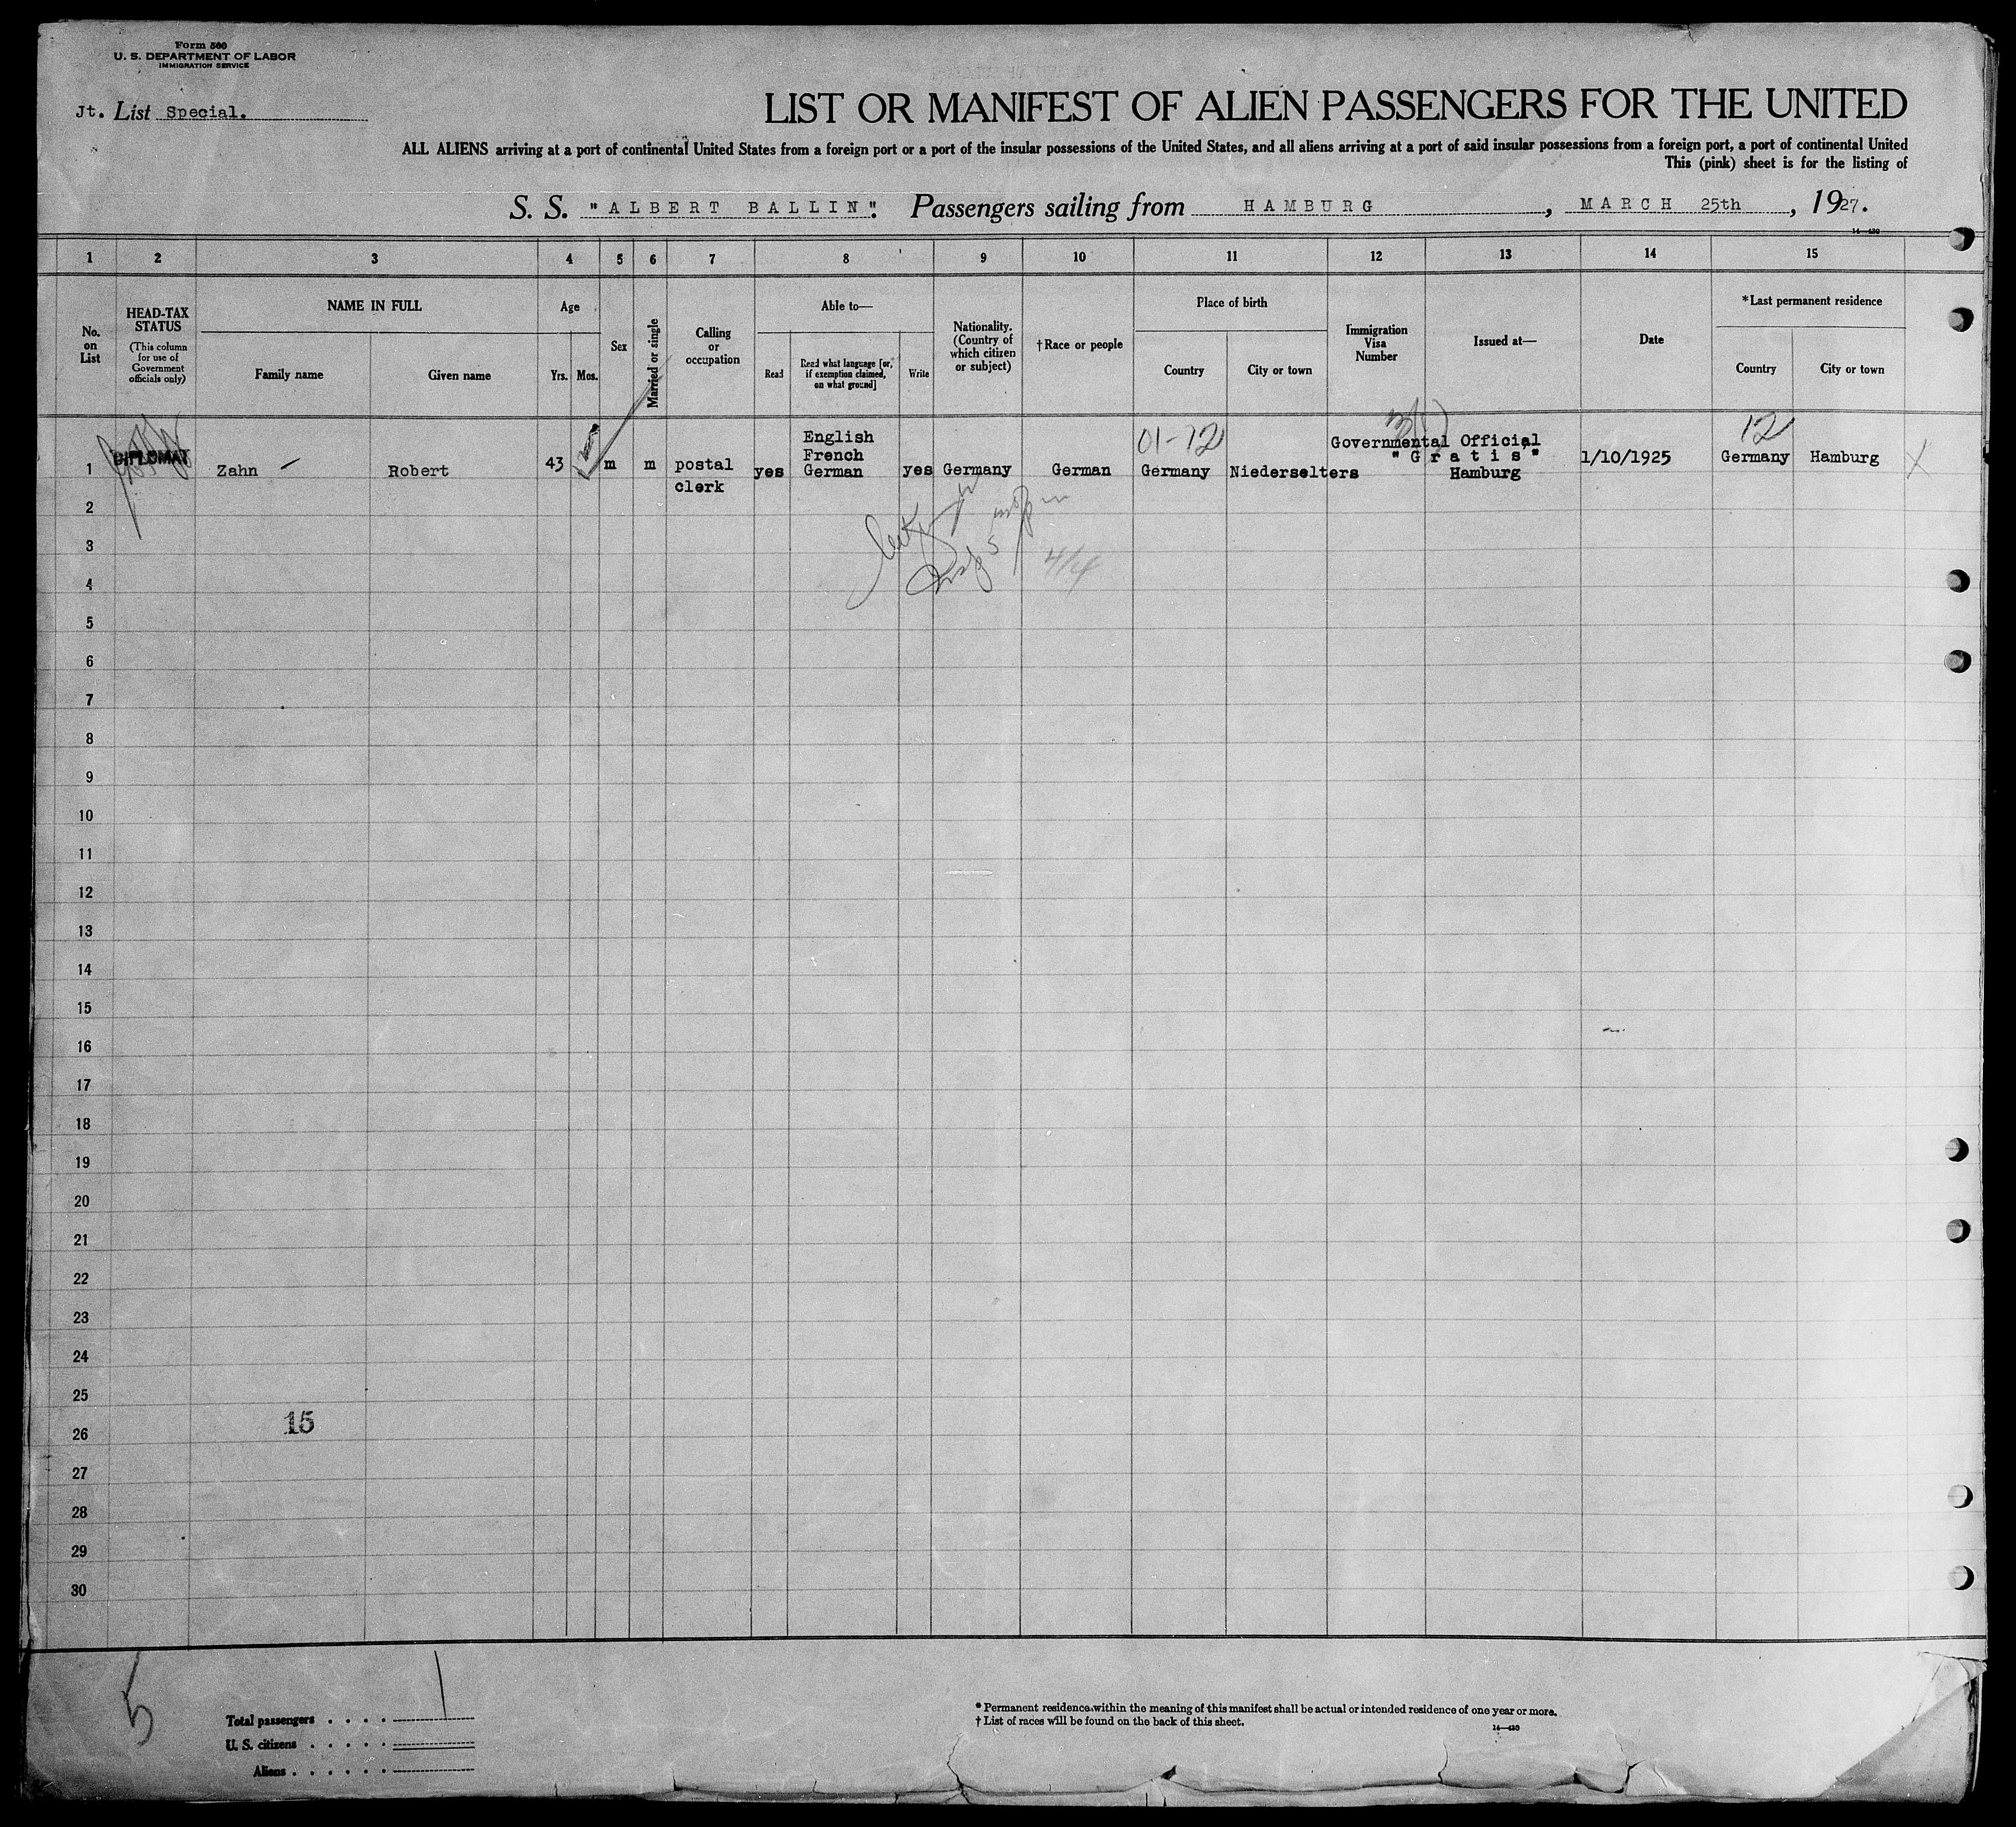 Form 500
U. S. DEPARTMENT OF LABOR
IMMIGRATION SERVICE
Jt. List Special.
LIST OR MANIFEST OF ALIEN PASSENGERS FOR THE UNITED
ALL ALIENS arriving at a port of continental United States from a foreign port or a port of the insular possessions of the United States, and all aliens arriving at a port of said insular possessions from a foreign port, a port of continental United
This (pink) sheet is for the listing of
S. S. "ALBERT BALLIN". Passengers sailing from HAMBURG, MARCH 25th, 1927.
14—430
1 2 3 4 5 6 7 8 9 10 11 12 13 14 15
No. on List
HEAD-TAX STATUS
(This column for use of Government officials only)
NAME IN FULL
Family name Given name
Age
Yrs. Mos.
Sex
Married or single
Calling or occupation
Able to—
Read
Read what language [or, if exemption claimed, on what ground]
Write
Nationality. (Country of which citizen or subject)
†Race or people
Place of birth
Country City or town
Immigration Visa Number
Issued at—
Date
*Last permanent residence
Country City or town
01-12
12
1 DIPLOMAT Zahn Robert 43 m m postal clerk yes English French German yes Germany German Germany Niederselters Governmental Official "Gratis" Hamburg 1/10/1925 Germany Hamburg X
4/4
2
3
4
5
6
7
8
9
10
11
12
13
14
15
16
17
18
19
20
21
22
23
24
25
15
26
27
28
29
30
5
Total passengers . . . . 1
U. S. citizens . . . . .
Aliens . . . . . .
* Permanent residence within the meaning of this manifest shall be actual or intended residence of one year or more.
† List of races will be found on the back of this sheet.
14—430